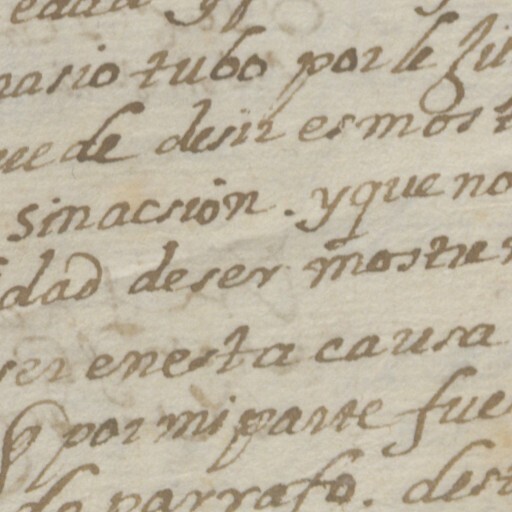 edad
nasio tubo por le
uede desir es most
sinacsion. y que no
dad de ser mostre
ser en esta causa
q por mi parte fue
de parrafo. des